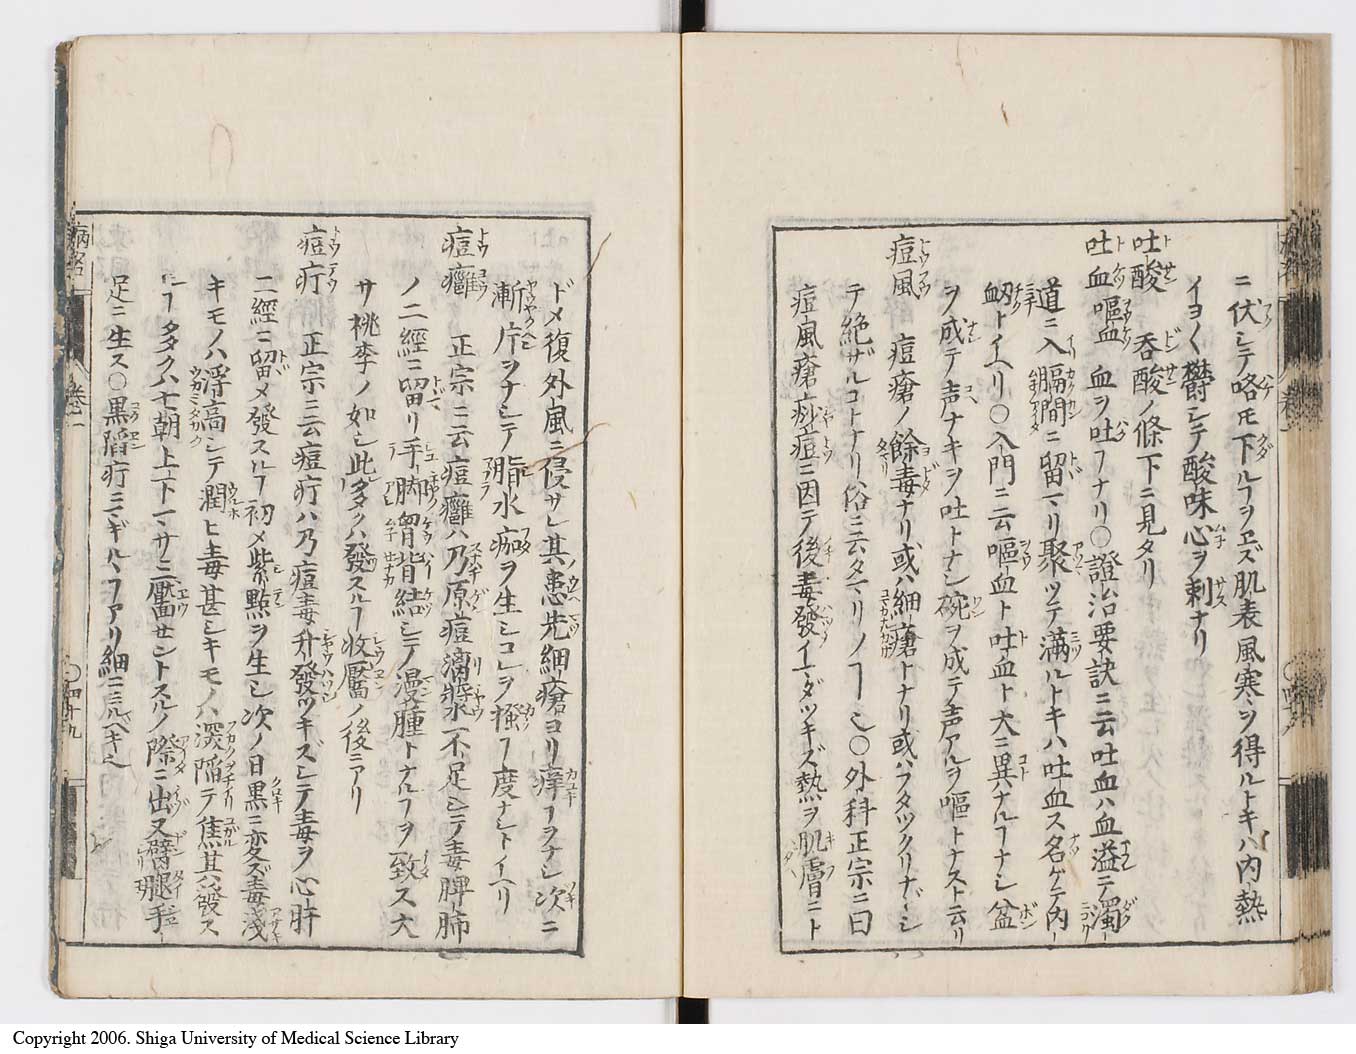 ニ伏シテ咯モ下ルヿヲヱズ肌表風寒ヲ得ルトキハ内熱
イヨ〱欝シテ酸味心ヲ刺ナリ
吐酸 呑酸ノ條下ニ見タリ
吐血嘔血 血ヲ吐フナリ〇證治要訣ニ云吐血ハ血溢テ濁
道ニ入膈間ニ留マリ聚ツテ満ルトキハ吐血ス名ゲテ内
衂トイヘリ〇入門ニ云嘔血ト吐血ト大ニ異ナルヿナシ盆
ヲ成テ声ナキヲ吐トナシ碗ヲ成テ声アルヲ嘔トナスト云リ
痘風 痘瘡ノ餘毒ナリ或ハ細瘡トナリ或ハフタツクリナヾシ
テ絶ザルコトナリ俗ニ云タマリノヿ也〇外科正宗ニ曰
痘風瘡痧痘ニ因テ後毒發イマダツキズ熱ヲ肌膚ニト
ドメ復外風ニ侵サレ其患先細瘡ヨリ痒ヿヲナシ次ニ
漸片ヲナシテ脂水痂ヲ生シコレヲ搔ヿ度ナシトイヘリ
痘癰 正宗ニ云痘癰ハ乃原痘漓漿不足シテ毒脾肺
ノ二經ニ留リ手脚胷背結シテ漫腫トナルヿヲ致ス大
サ桃李ノ如シ此多クハ發スルヿ收靨ノ後ニアリ
痘疔 正宗ニ云痘疔ハ乃痘毒升發ツキズシテ毒ヲ心肝
二經ニ留メ發スルヿ初メ紫點ヲ生シ次ノ日黒ニ変ズ毒浅
キモノハ浮高シテ潤ヒ毒甚シキモノハ深陥テ焦其發ス
ルヿタクハ七朝上下マサニ靨セントスルノ際ニ出又臂腿手
足ニ生ス〇黒陷疔ニマギルヽヿアリ細ニ見ベキ也
病名
巻之一
〇四十九
Copyright 2006. Shiga University of Medical Science Library